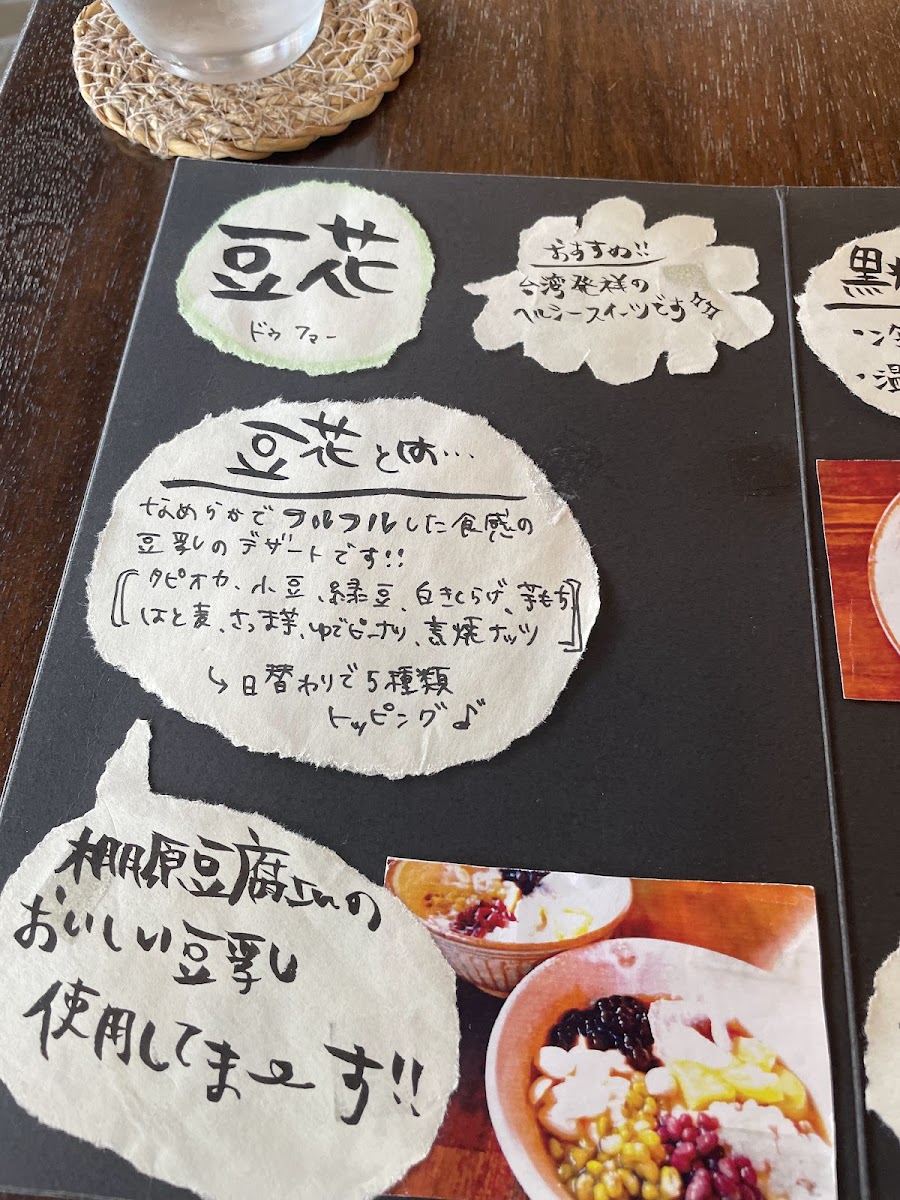 豆花
ドゥ ファー
おすすめ!!
台湾発祥の
ヘルシースイーツです☆☆
豆花とは…
なめらかでフルフルした食感の
豆乳のデザートです!!
[タピオカ、小豆、緑豆、白きくらげ、芋もち
はと麦、さつま芋、ゆでピーナツ、素焼ナッツ]
↳日替わりで5種類
トッピング♪
棚原豆腐さんの
おいしい豆乳
使用してま〜す!!
黒
・温